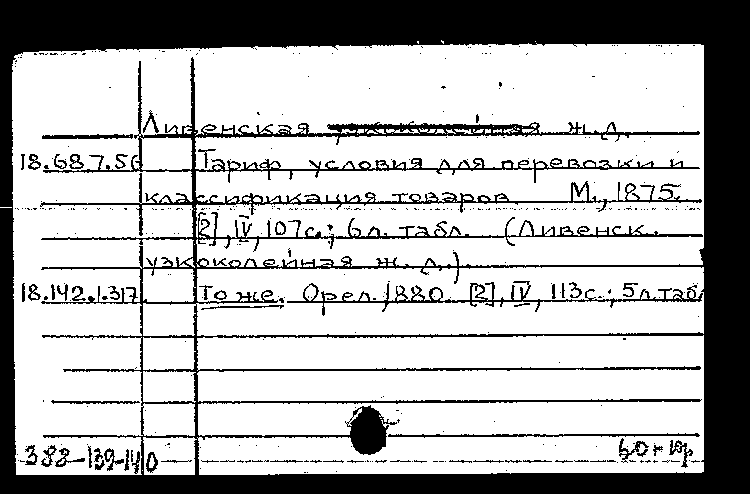 Ливенская узкоколейная ж.д.
18.687.56 Тариф, условия для перевозки и
классификация товаров М., 1875.
[2], IV, 107с.; 6л. табл. (Ливенск.
узкоколейная ж.д.).
18.142.1.317. То же. Орел. 1880. [2], IV, 113с.; 5л.табл
388-139-140